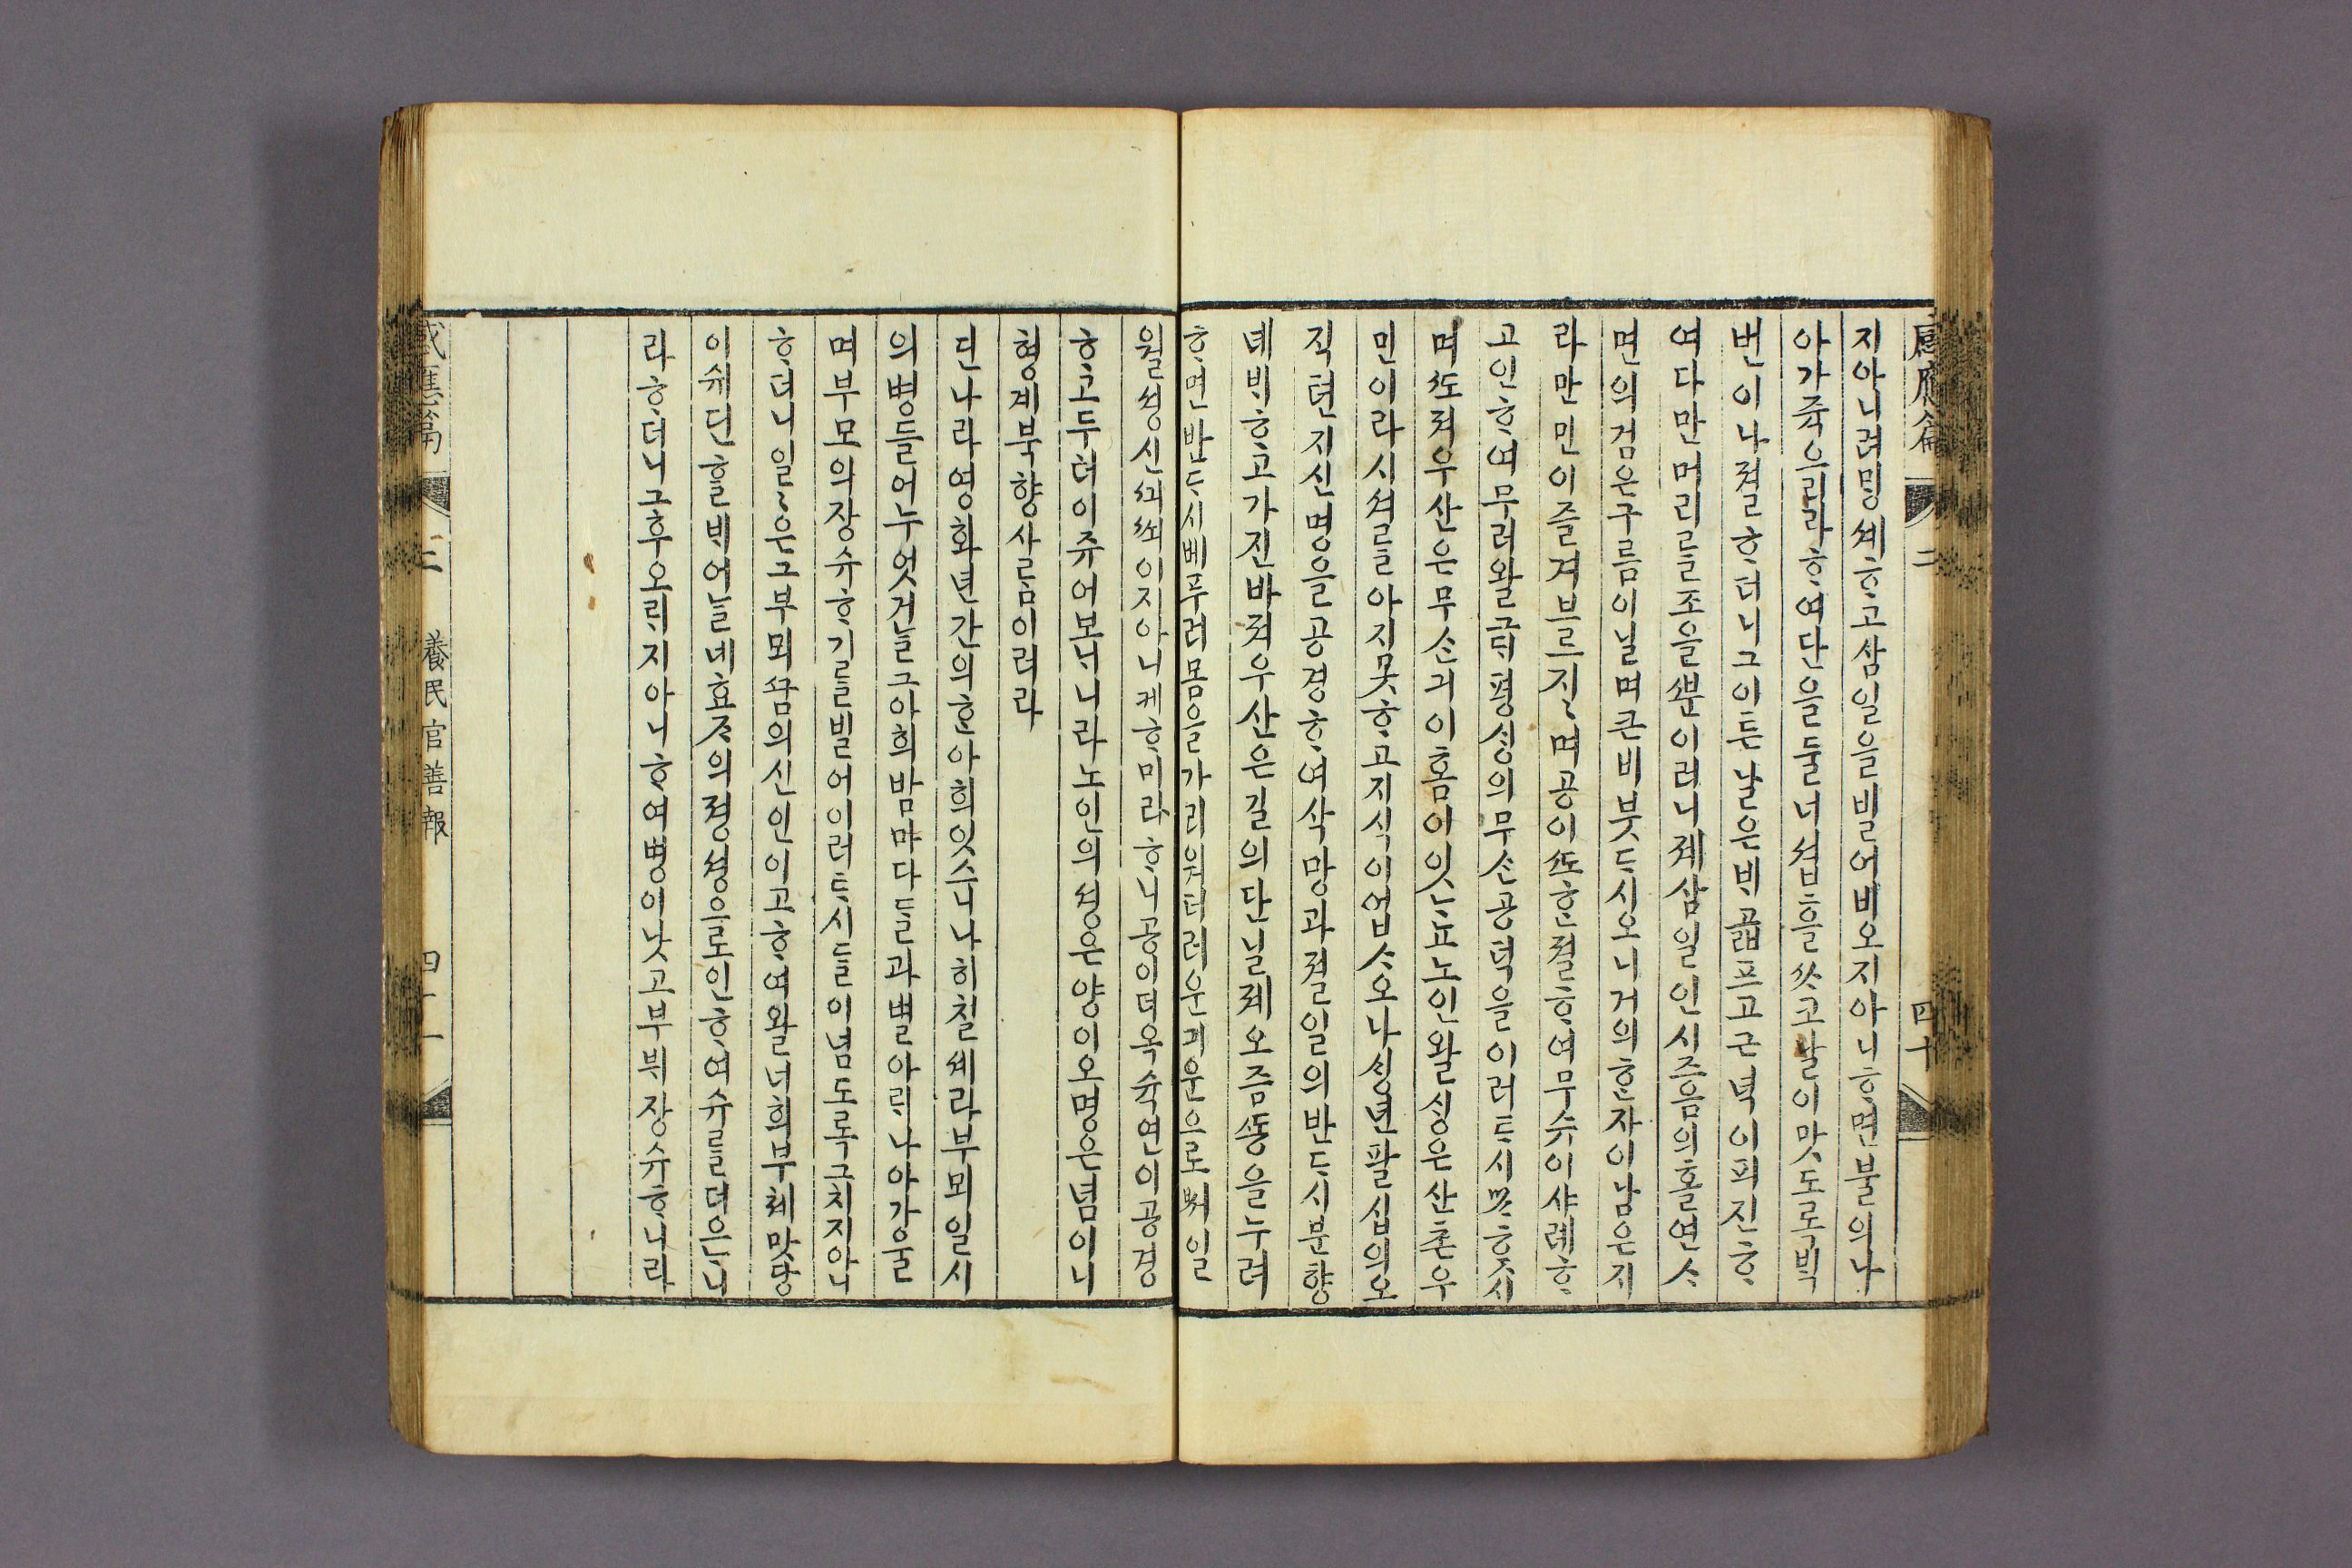 感應篇 二 四十
지아니려밍셰ᄒᆞ고삼일을빌어비오지아니ᄒᆞ면불의나
아가쥭으리라ᄒᆞ여단을둘너셥흘ᄡᆞ코날이맛도록ᄇᆡᆨ
번이나졀ᄒᆞ더니그이튼날은ᄇᆡ곫프고근녁이픠진ᄒᆞ
여다만머리를조을ᄲᅮᆫ이러니졔삼일인시즈음의홀연ᄉ
면의검은구름이닐며큰비붓드시오니거의ᄒᆞᆫ자이남은지
라만민이즐겨브르지지며공이ᄯᅩᄒᆞᆫ졀ᄒᆞ여무슈이샤례ᄒᆞ
고인ᄒᆞ여무러왈근ᄃᆡ평ᄉᆡᆼ의무ᄉᆞᆫ공덕을이러ᄐᆞ시ᄒᆞ시
며ᄯᅩ져우산은무ᄉᆞᆫ긔이홈이잇ᄂᆞ뇨노인왈ᄉᆡᆼ은산촌우
민이라시셔를아지못ᄒᆞ고지식이업ᄉᆞ오나ᄉᆡᆼ년팔십의오
직텬지신명을공경ᄒᆞ여삭망과졀일의반ᄃᆞ시분향
녜ᄇᆡᄒᆞ고가진바져우산은길의단닐졔오즘ᄯᅩᆼ을누려
ᄒᆞ면반ᄃᆞ시베푸러몸을가리워더러운긔운으로ᄡᅥ일
월셩신ᄭᅴᄶᅬ이지아니케ᄒᆞ미라ᄒᆞ니공이더옥슉연이공경
ᄒᆞ고두터이쥬어보ᄂᆡ니라노인의셩은양이오명은념이니
형계부향사ᄅᆞᆷ이러라
딘나라영화년간의ᄒᆞᆫ아희잇스니나히칠셰라부뫼일시
의병들어누엇거늘그아희밤마다들과별아ᄅᆡ나아가울
며부모의장슈ᄒᆞ기를빌어이러ᄐᆞ시들이념도록그치지아니
ᄒᆞ더니일일은그부뫼ᄭᅮᆷ의신인이고ᄒᆞ여왈너희부쳬맛당
이쉐딘ᄒᆞᆯᄇᆡ어늘네효ᄌᆞ의졍셩으로인ᄒᆞ여슈를더으ᄂᆞ니
라ᄒᆞ더니그후오ᄅᆡ지아니ᄒᆞ여병이낫고부뫼장슈ᄒᆞ니라
感應篇 二 養民官善報 四十一